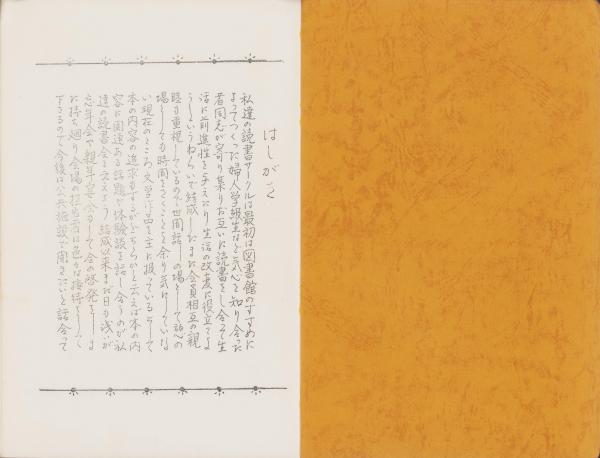 はしがき
私達の読書サークルは最初は図書館のすすめに
よってつくった婦人学級生など気心を知り合った
者同志が寄り集りお互いに読書をし合って生
活に前進性を与えたり生活の改善に役立てよ
うというねらいで結成したまた会員相互の親
睦も重視しているので世間話しの場として訪への
場としても時間をさくことを余り気にしていな
い現在のところ文学作品を主に扱っているそして
本の内容の追求もするがどちらかと云えば本の内
容に関連ある話題や体験談を話し合うのが私
達の読書会と云えよう 結成以来まだ日も浅いが
忘年会や親年宴会などして会の啓発をしま
た持ち廻り会場の担当者は色々な接待をして
下さるので今後は公共施設で開きたいと話合って